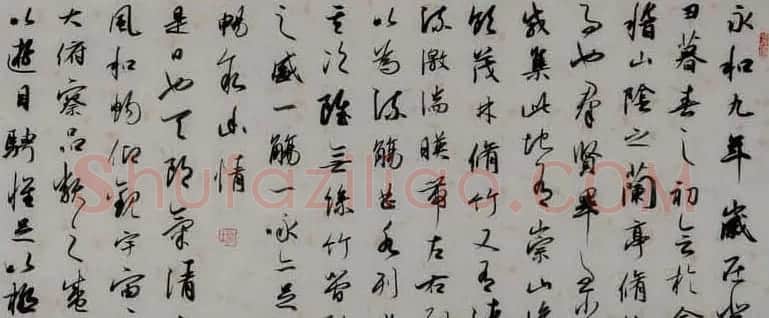 永和九年歲在
丑暮春之初會於會
稽山陰之蘭亭脩
事也羣賢畢至
咸集此地有崇山
領茂林脩竹又有清
流激湍暎帶左右
以為流觴曲水列
其次雖無絲竹管
之盛一觴一詠亦足
暢叙幽情
是日也天朗氣清
風和暢仰觀宇宙之
大俯察品類之盛
以遊目騁懷足以極
Shufaziliao.COM